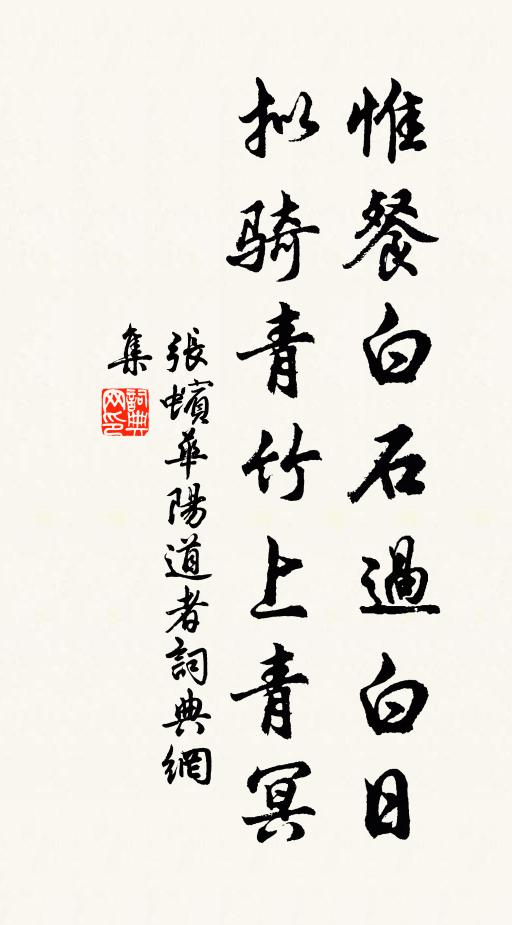 惟餐白石過白日
拟骑青竹上青冥
張蠙華陽道者詞典網
集
詞典网印